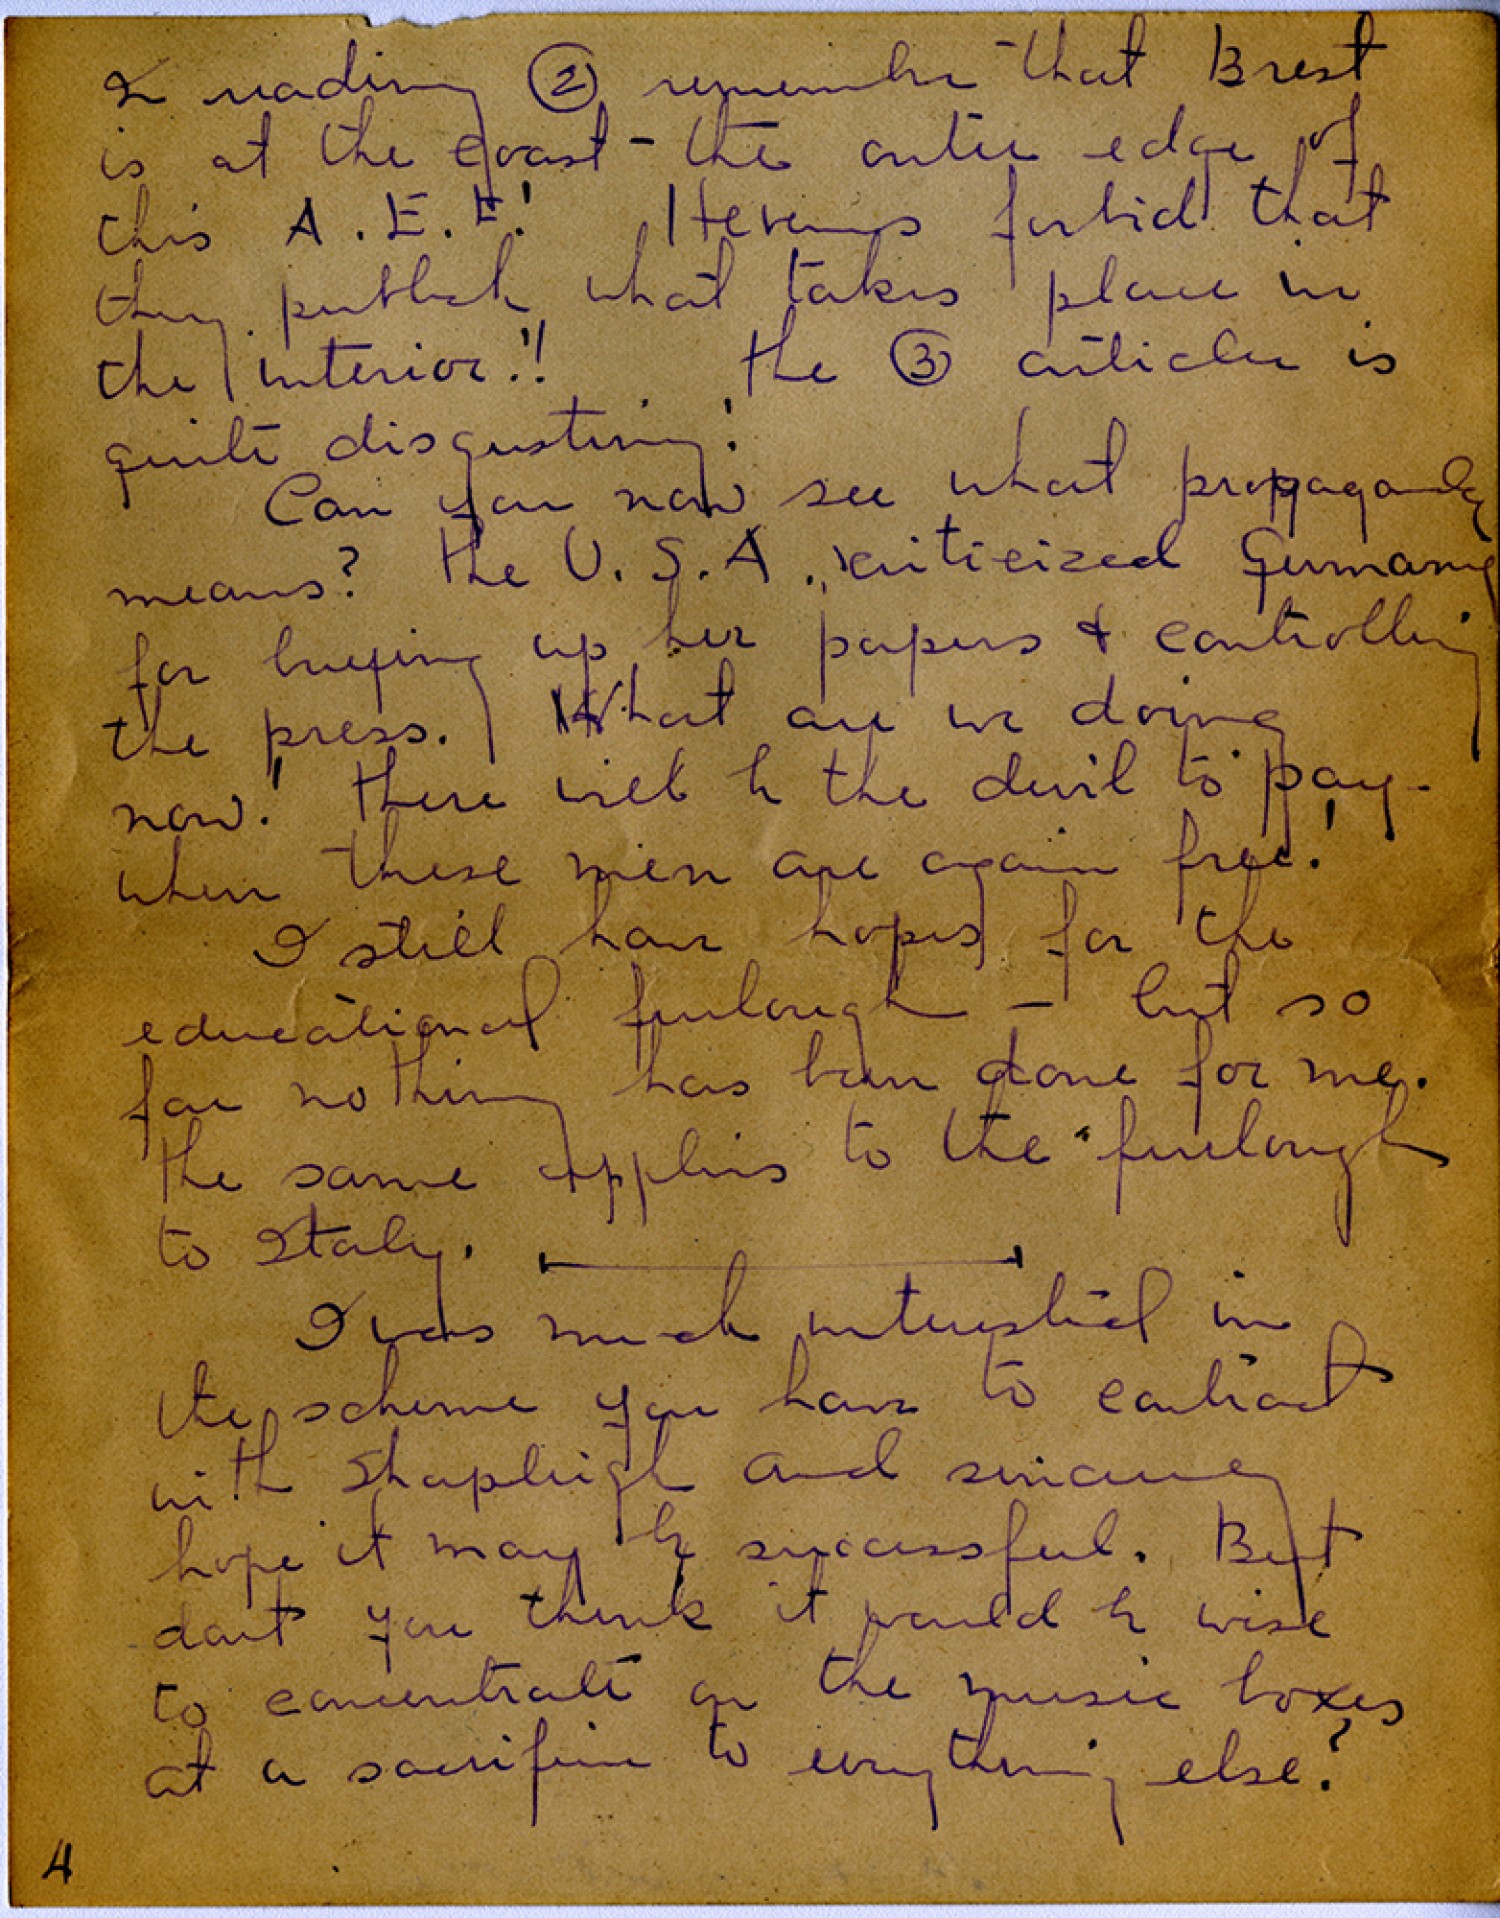 In reading ② remember that Brest
is at the coast – the outer edge of
this A.E.F.! Hevens forbid that
they publish what takes place in
the interior!! The ③ article is
quite disgusting!
Can you now see what propaganda
means? The U.S.A. criticized Germany
for buying up her papers & controlling
the press. What are we doing
now! There will be the devil to pay –
when these men are again free!
I still have hopes for the
educational furlough – but so
far nothing has been done for me.
The same applies to the furlough
to Italy.
I was much interested in
the scheme you have to contract
with Shapleigh and sincerely
hope it may be successful. But
dont you think it would be wise
to concentrate on the music boxes
at a sacrifice to everything else?
4